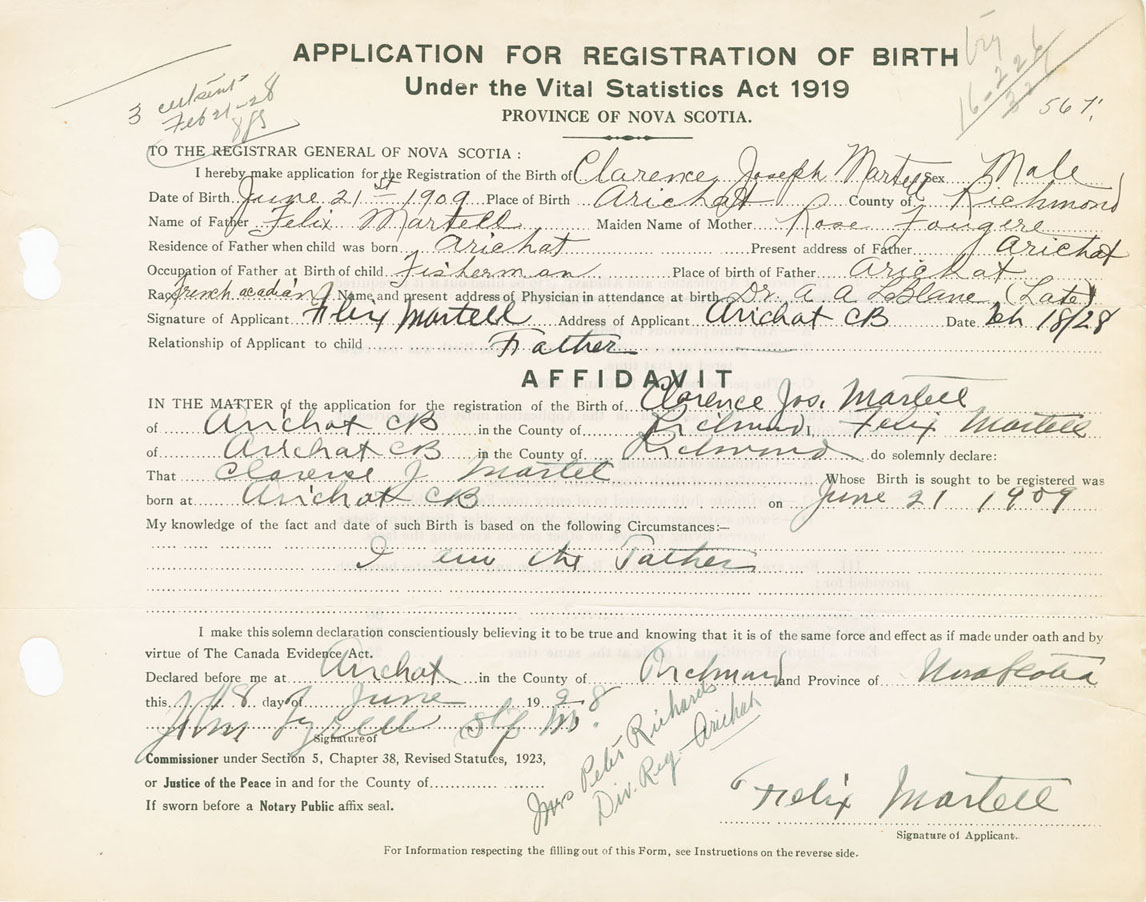 APPLICATION FOR REGISTRATION OF BIRTH
Under the Vital Statistics Act 1919
PROVINCE OF NOVA SCOTIA.
3 cert sent
Feb 21-28
16-226
567
TO THE REGISTRAR GENERAL OF NOVA SCOTIA :
I hereby make application for the Registration of the Birth of Clarence Joseph Martell Sex Male
Date of Birth June 21st 1909 Place of Birth Arichat County of Richmond
Name of Father Felix Martell Maiden Name of Mother Rose Fougere
Residence of Father when child was born Arichat Present address of Father Arichat
Occupation of Father at Birth of child Fisherman Place of birth of Father Arichat
Race French acadian Name and present address of Physician in attendance at birth Dr. A A LeBlanc (Late)
Signature of Applicant Felix Martell Address of Applicant Arichat CB Date Feb 18/28
Relationship of Applicant to child Father
AFFIDAVIT
IN THE MATTER of the application for the registration of the Birth of Clarence Jos. Martell
of Arichat CB in the County of Richmond, Felix Martell
of Arichat CB in the County of Richmond do solemnly declare:
That Clarence J Martel Whose Birth is sought to be registered was
born at Arichat CB on June 21 1909
My knowledge of the fact and date of such Birth is based on the following Circumstances:—
I am the Father
I make this solemn declaration conscientiously believing it to be true and knowing that it is of the same force and effect as if made under oath and by
virtue of The Canada Evidence Act.
Declared before me at Arichat in the County of Richmond and Province of Nova Scotia
this 18 day of June 1928
John Tyrell
Signature of
Commissioner under Section 5, Chapter 38, Revised Statutes, 1923,
or Justice of the Peace in and for the County of
If sworn before a Notary Public affix seal.
Mrs Peter Richards
Div. Reg Arichat
Felix Martell
Signature of Applicant.
For Information respecting the filling out of this Form, see Instructions on the reverse side.